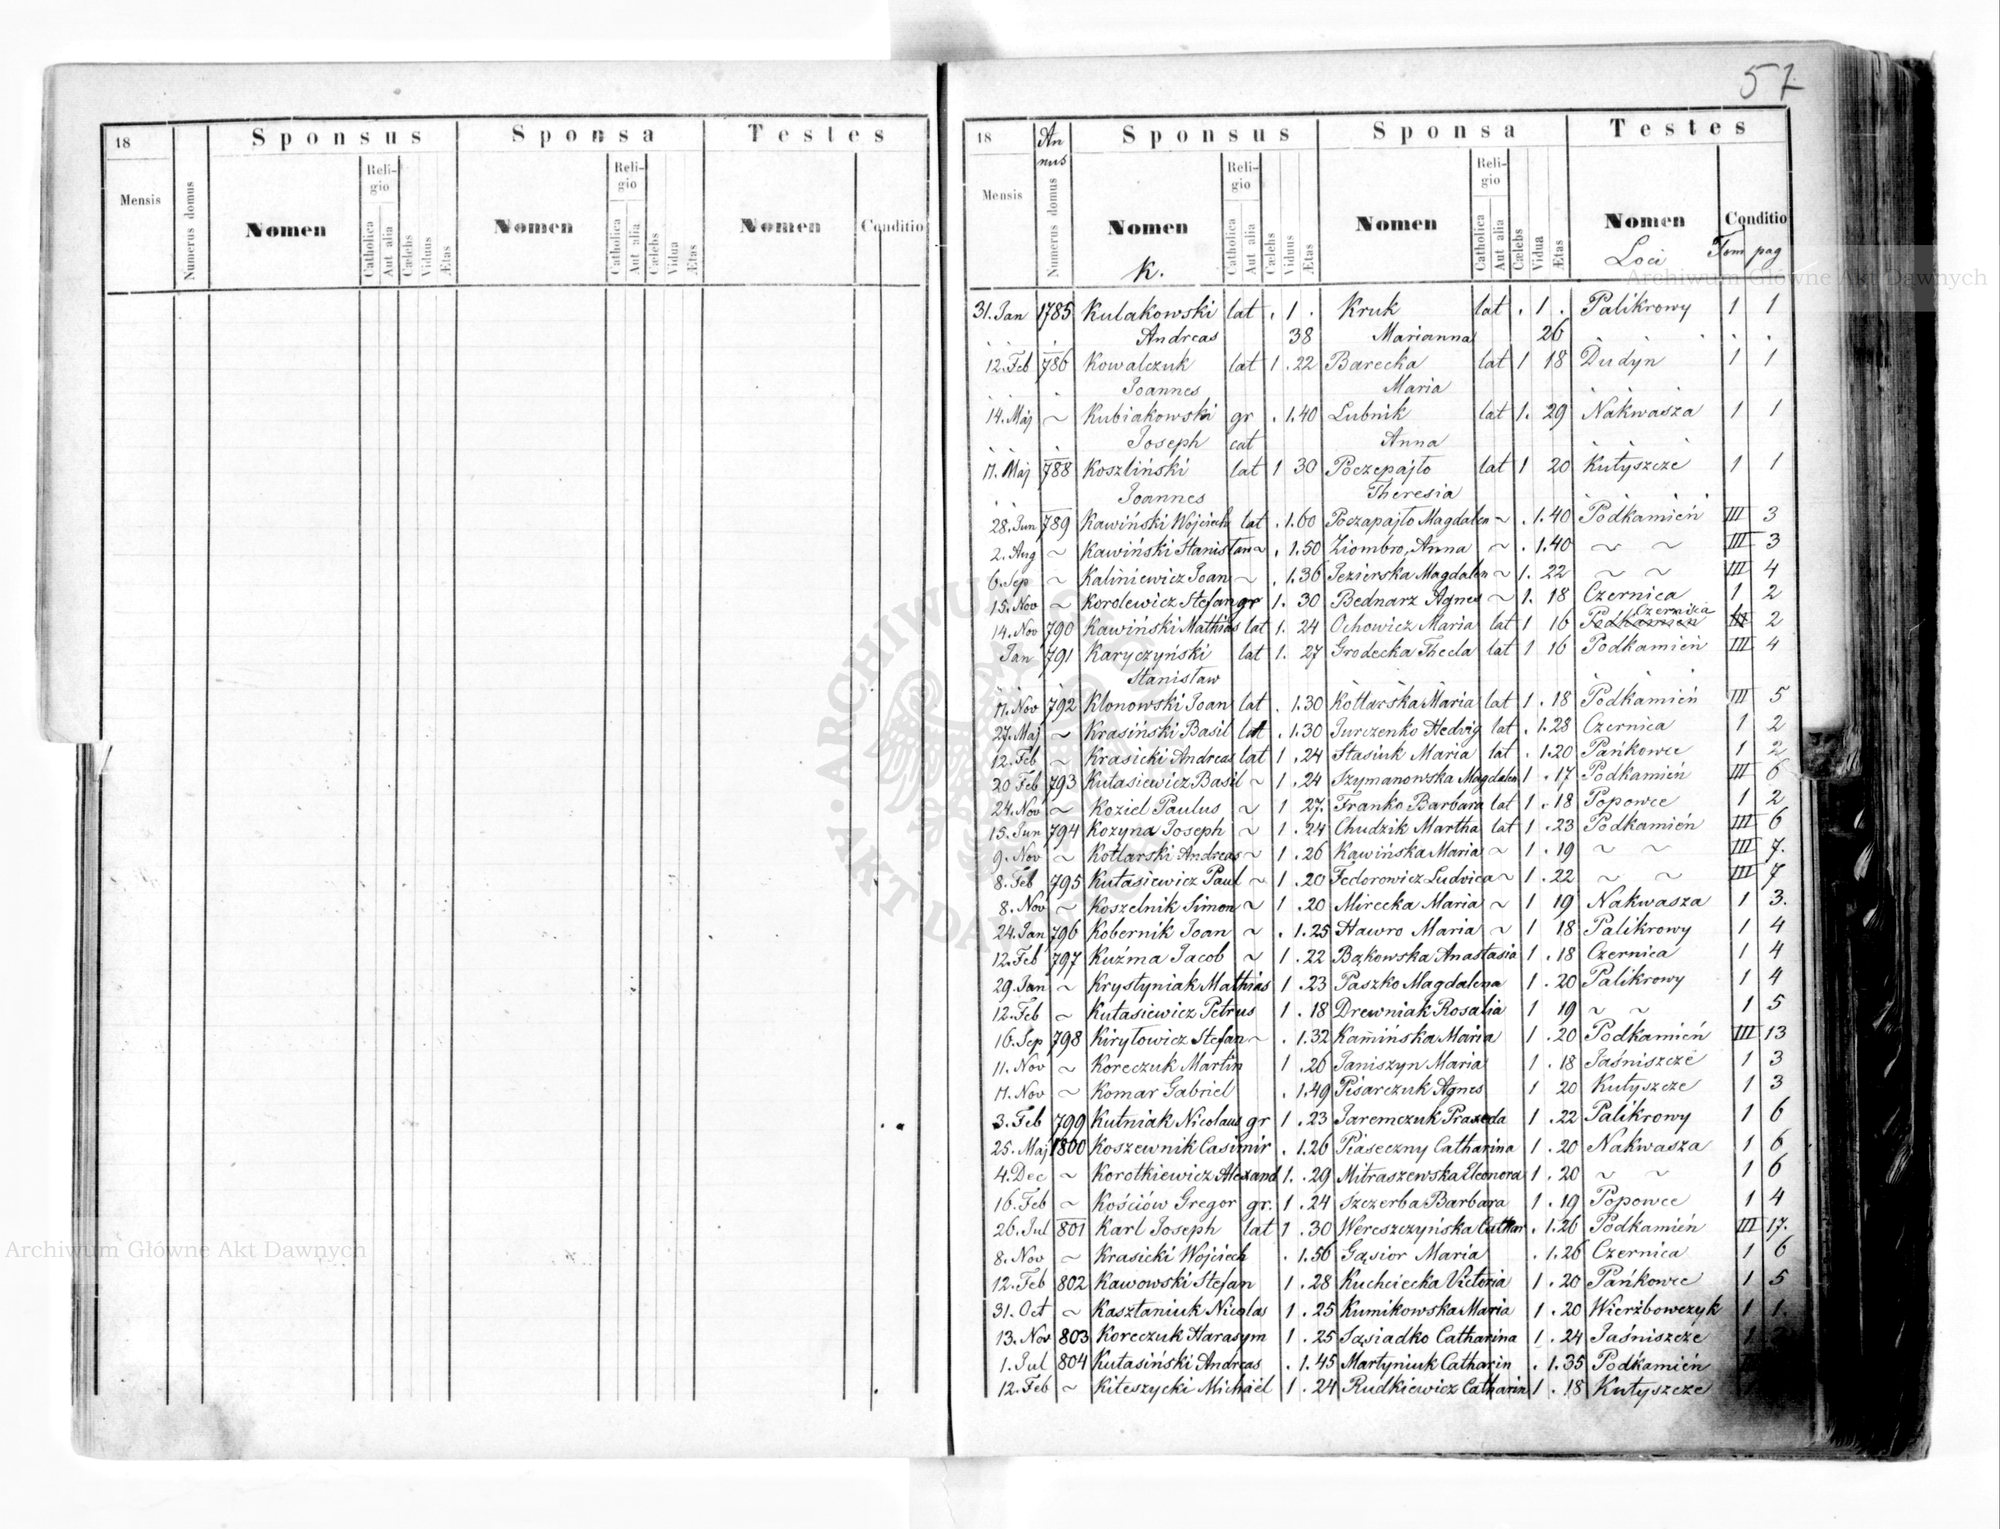 57
18
Mensis
Numerus domus
Sponsus
Nomen
Religio
Catholica
Aut alia
Cælebs
Viduus
Ætas
Sponsa
Nomen
Religio
Catholica
Aut alia
Cælebs
Vidua
Ætas
Testes
Nomen
Conditio
18
Mensis
Annus
Numerus domus
Sponsus
Nomen
K.
Religio
Catholica
Aut alia
Cælebs
Vidus
Ætas
Sponsa
Nomen
Religio
Catholica
Aut alia
Cælebs
Vidua
Ætas
Testes
Nomen
Loci
Conditio
Tom pag
31. Jan 1785 Kulakowski lat . 1 . Kruk lat . 1 . Palikrowy 1 1
Andreas 38 Marianna 26
12. Feb 786 Kowalczuk lat 1 . 22 Barecka lat 1 18 Dudyn 1 1
Joannes Maria
14. Maj ~ Kubiakowski gr . 1. 40 Lubnik lat 1. 29 Nakwasza 1 1
Joseph cat Anna
17. Maj 788 Koszliński lat 1 30 Poczepajło lat 1 20 Kutyszcze 1 1
Joannes Theresia
28. Jun 789 Kawiński Wojciech lat . 1. 60 Poczapajło Magdalen ~ . 1. 40 Podkamień III 3
2. Aug ~ Kawiński Stanisław ~ . 1. 50 Ziombro, Anna ~ . 1. 40 ~ ~ III 3
6. Sep ~ Kaliniewicz Joan ~ . 1. 36 Jezierska Magdalen ~ 1. 22 ~ ~ III 4
15. Nov ~ Korolewicz Stefan gr 1. 30 Bednarz Agnes ~ 1. 18 Czernica 1 2
14. Nov 790 Kawiński Mathias lat 1. 24 Ochowicz Maria lat 1 16 Podkamień Czernica III 2
Jan 791 Karyczyński lat 1. 27 Grodecka Thecla lat 1 16 Podkamień III 4
Stanisław
17. Nov 792 Klonowski Joan lat . 1. 30 Kotlarska Maria lat 1 . 18 Podkamień III 5
27. Maj ~ Krasiński Basil lat . 1. 30 Jurczenko Hedvig lat . 1. 28 Czernica 1 2
12. Feb ~ Krasicki Andreas lat 1 . 24 Stasiuk Maria lat . 1. 20 Pańkowce 1 2
20 Feb 793 Kutasiewicz Basil ~ 1 . 24 Szymanowska Magdalen 1 . 17 Podkamień III 6
24. Nov ~ Koziel Paulus ~ 1 27. Franko Barbara lat 1 . 18 Popowce 1 2
15. Jun 794 Kozyna Joseph ~ 1 . 24 Chudzik Martha lat 1 . 23 Podkamień III 6
9. Nov ~ Kotlarski Andreas ~ 1 . 26 Kawińska Maria ~ 1 . 19 ~ ~ III 7.
8. Feb 795 Kutasiewicz Paul ~ 1 . 20 Fedorowicz Ludvica ~ 1 . 22 ~ ~ III 7
8. Nov ~ Koszelnik Simon ~ 1 . 20 Mirecka Maria ~ 1 19 Nakwasza 1 3.
24. Jan 796 Kobernik Joan ~ . 1. 25 Hawro Maria ~ 1 18 Palikrowy 1 4
12. Feb 797 Kuźma Jacob ~ 1 . 22 Bąkowska Anastasia 1 . 18 Czernica 1 4
29. Jan ~ Krystyniak Mathias 1 . 23 Paszko Magdalena 1 . 20 Palikrowy 1 4
12. Feb ~ Kutasiewicz Petrus 1 . 18 Drewniak Rosalia 1 19 ~ ~ 1 5
16. Sep 798 Kiryłowicz Stefan ~ . 1. 32 Kamińska Maria 1 . 20 Podkamień III 13
11. Nov ~ Koreczuk Martin 1 . 26 Janiszyn Maria 1 . 18 Jaśniszcze 1 3
17. Nov ~ Komar Gabriel . 1. 49 Pisarczuk Agnes 1 20 Kutyszcze 1 3
3. Feb 799 Kutniak Nicolaus gr 1 . 23 Jaremczuk Praxeda 1 . 22 Palikrowy 1 6
25. Maj 1800 Koszewnik Casimir . 1. 26 Piaseczny Catharina 1 . 20 Nakwasza 1 6
4. Dec ~ Korotkiewicz Alexand 1. . 29 Mitraszewska Eleonora 1 . 20 ~ ~ 1 6
16. Feb ~ Kościów Gregor gr. 1 . 24 Szczerba Barbara 1 . 19 Popowce 1 4
26. Jul 801 Karl Joseph lat 1 . 30 Wereszczyńska Cathar . 1. 26 Podkamień III 17.
8. Nov ~ Krasicki Wojciech . 1. 56 Gąsior Maria . 1. 26 Czernica 1 6
12. Feb 802 Kawowski Stefan 1 . 28 Kuchciecka Victoria 1 . 20 Pańkowce 1 5
31. Oct ~ Kasztaniuk Nicolas 1 . 25 Kumikowska Maria 1 . 20 Wierzbowczyk 1 1.
13. Nov 803 Koreczuk Harasym 1 . 25 Sąsiadko Catharina 1 . 24 Jaśniszcze 1
1. Jul 804 Kutasiński Andreas . 1. 45 Martyniuk Catharin . 1. 35 Podkamień
12. Feb ~ Kiteszycki Michaël 1 . 24 Rudkiewicz Catharina 1 . 18 Kutyszcze
Archiwum Główne Akt Dawnych
Archiwum Główne Akt Dawnych